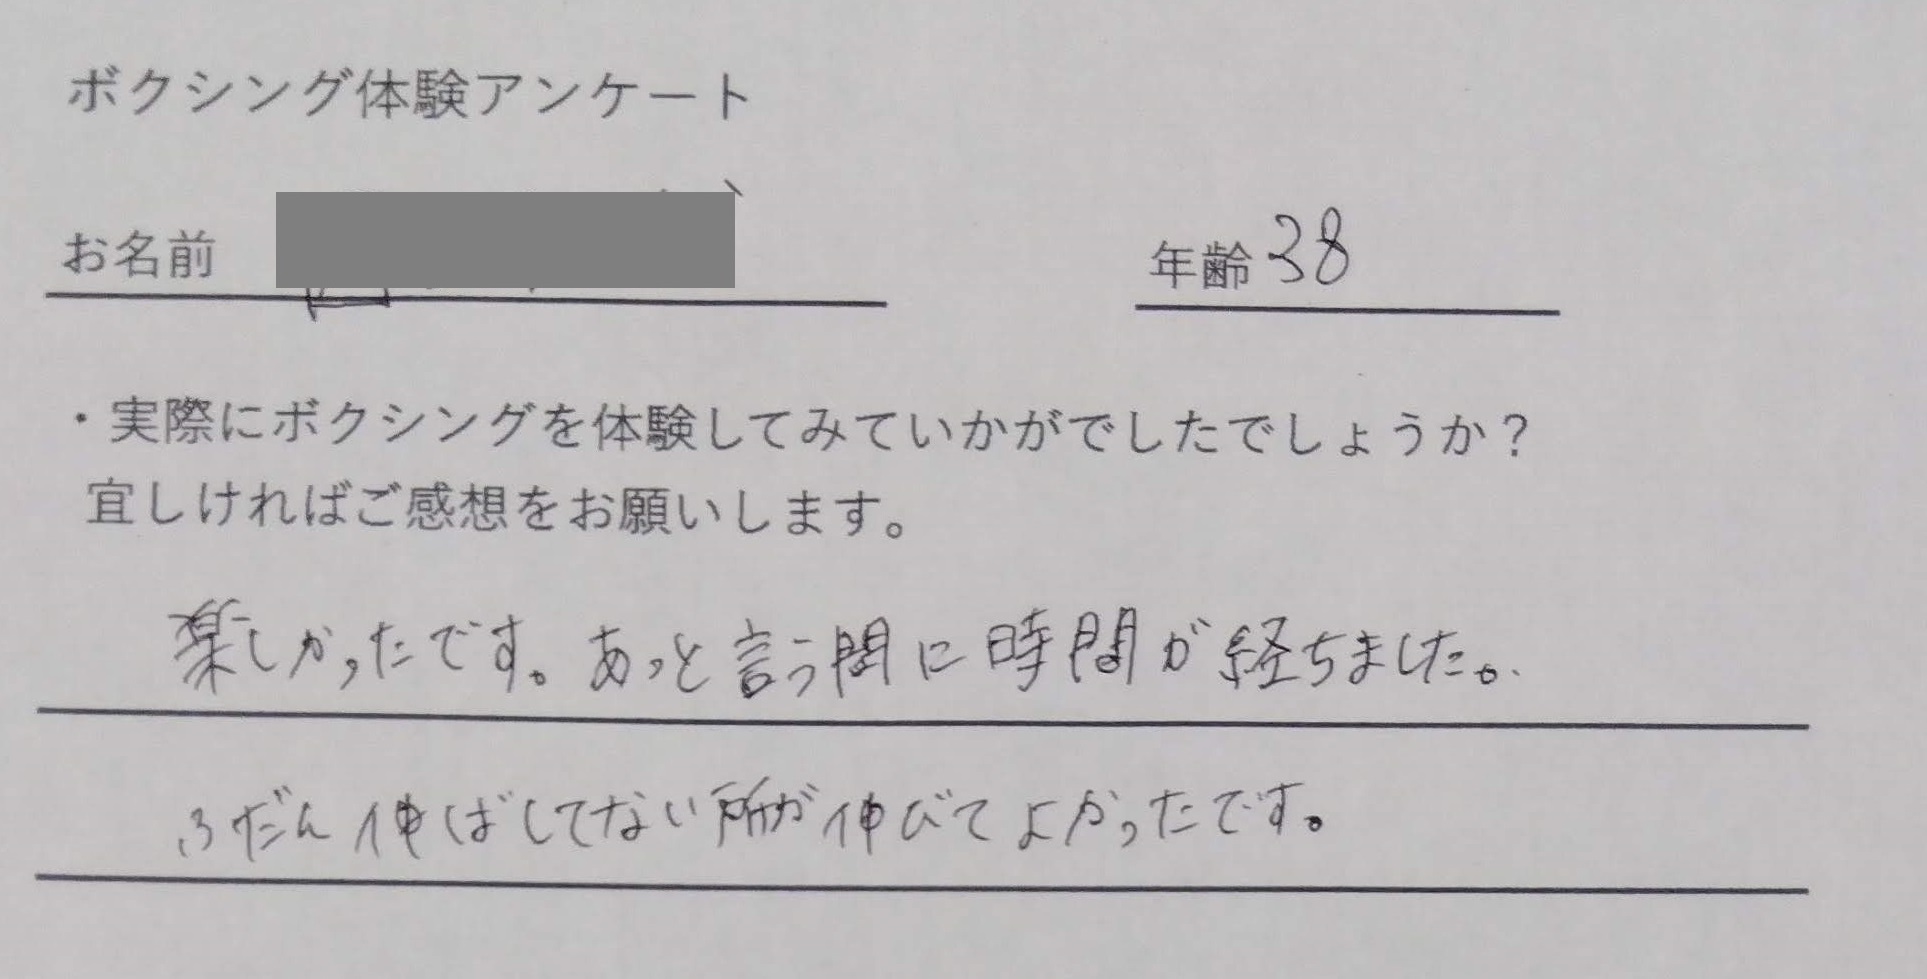 ボクシング体験アンケート
お名前
年齢 38
・実際にボクシングを体験してみていかがでしたでしょうか？
宜しければご感想をお願いします。
楽しかったです。あっと言う間に時間が経ちました。
ふだん伸ばしてない所が伸びてよかったです。